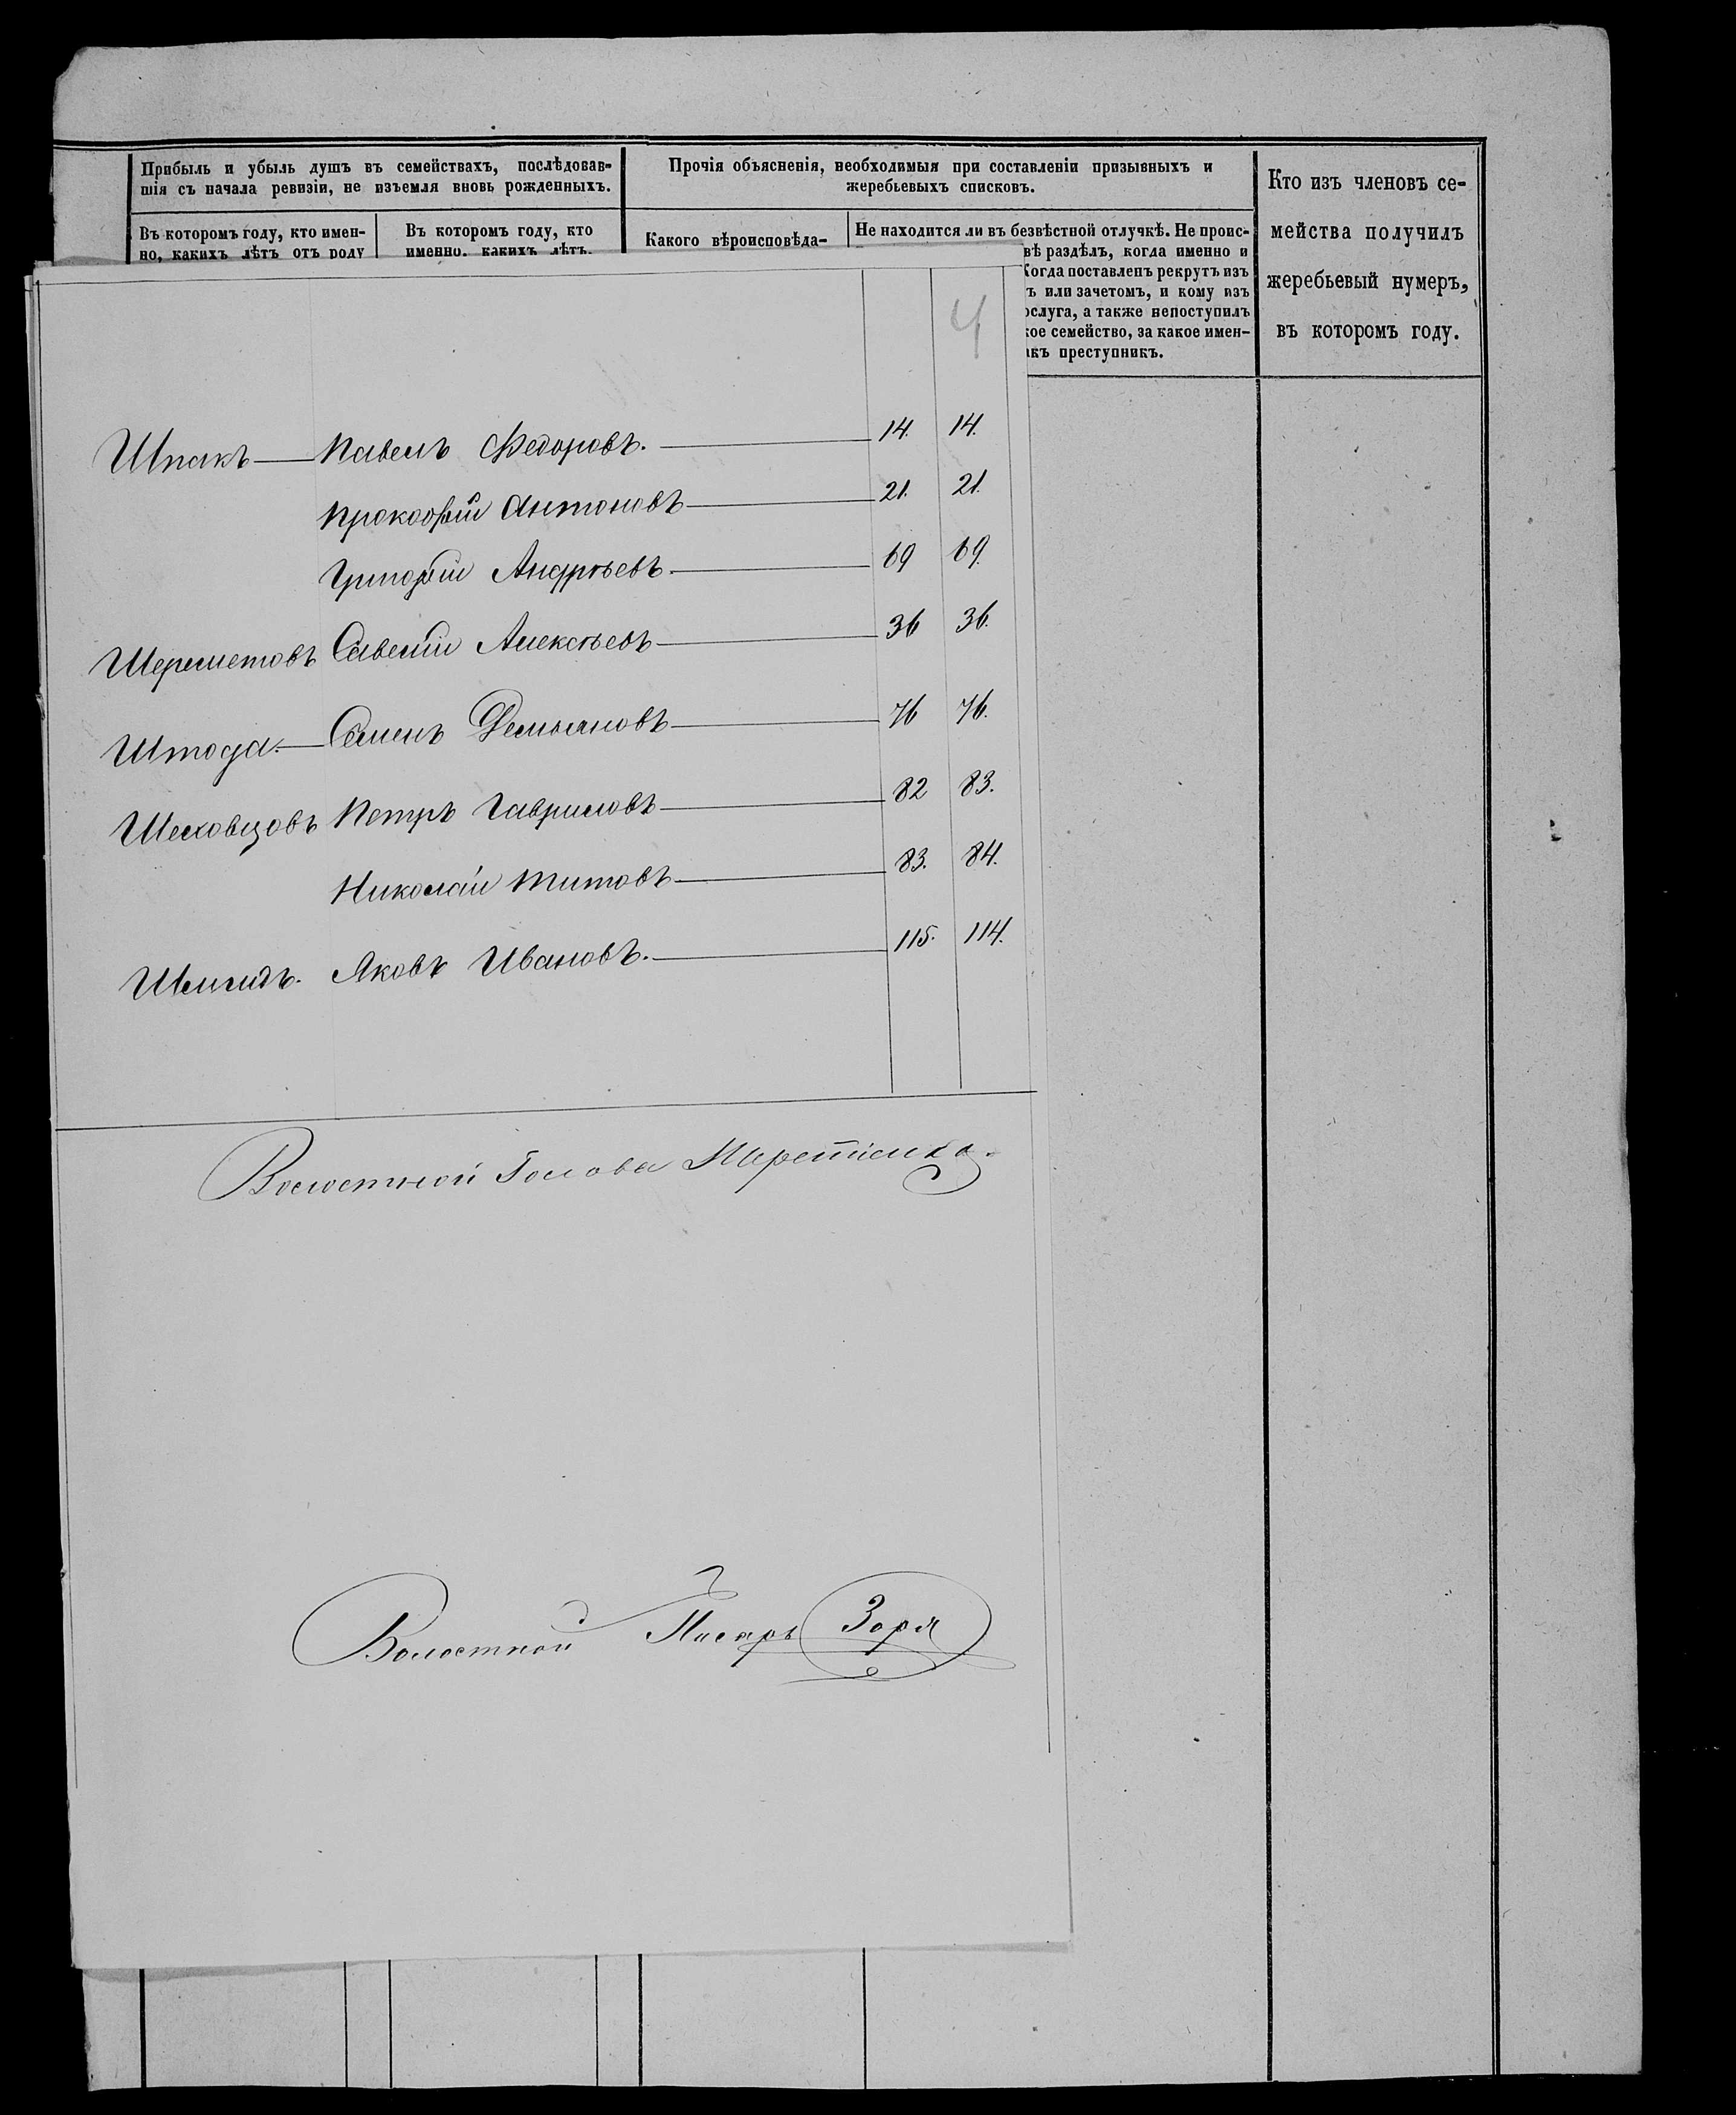 Прибыль и убыль душъ въ семействахъ, послѣдовав-
шія съ начала ревизіи, не изъемля вновь рожденныхъ.
Въ которомъ году, кто имен-
но, какихъ лѣтъ отъ роду
Въ которомъ году, кто
именно, какихъ лѣтъ,
Прочія объясненія, необходимыя при составленіи призывныхъ и
жеребьевыхъ списковъ.
Какого вѣроисповѣда-
Не находится ли въ безвѣстной отлучкѣ. Не проис-
вѣ раздѣлъ, когда именно и
Когда поставленъ рекрутъ изъ
ъ или зачетомъ, и кому изъ
ослуга, а также непоступилъ
кое семейство, за какое имен-
акъ преступникъ.
Кто изъ членовъ се-
мейства получилъ
жеребьевый нумеръ,
въ которомъ году.
4
Шпакъ — Павелъ Федоровъ. — 14. 14.
Прокофій Антоновъ — 21. 21.
Григорій Андрѣевъ. — 69 69.
Шереметовъ Савелій Алексѣевъ — 36 36.
Штода. — Семенъ Демьяновъ — 76 76.
Шелховцовъ Петръ Гавриловъ — 82 83.
Николай Титовъ — 83. 84.
Яковъ Ивановъ. — 115. 114.
Волостной Голова
Волостной Писарь Зоря